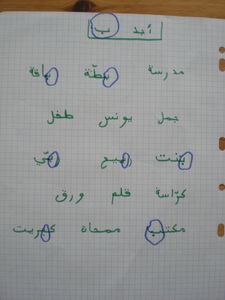 أجد ب
مدرسة بطّة باقة
جمل يونس طفل
بنت ربيع ربّي
كرّاسة قلم ورق
مكتب ممحاة كبريت